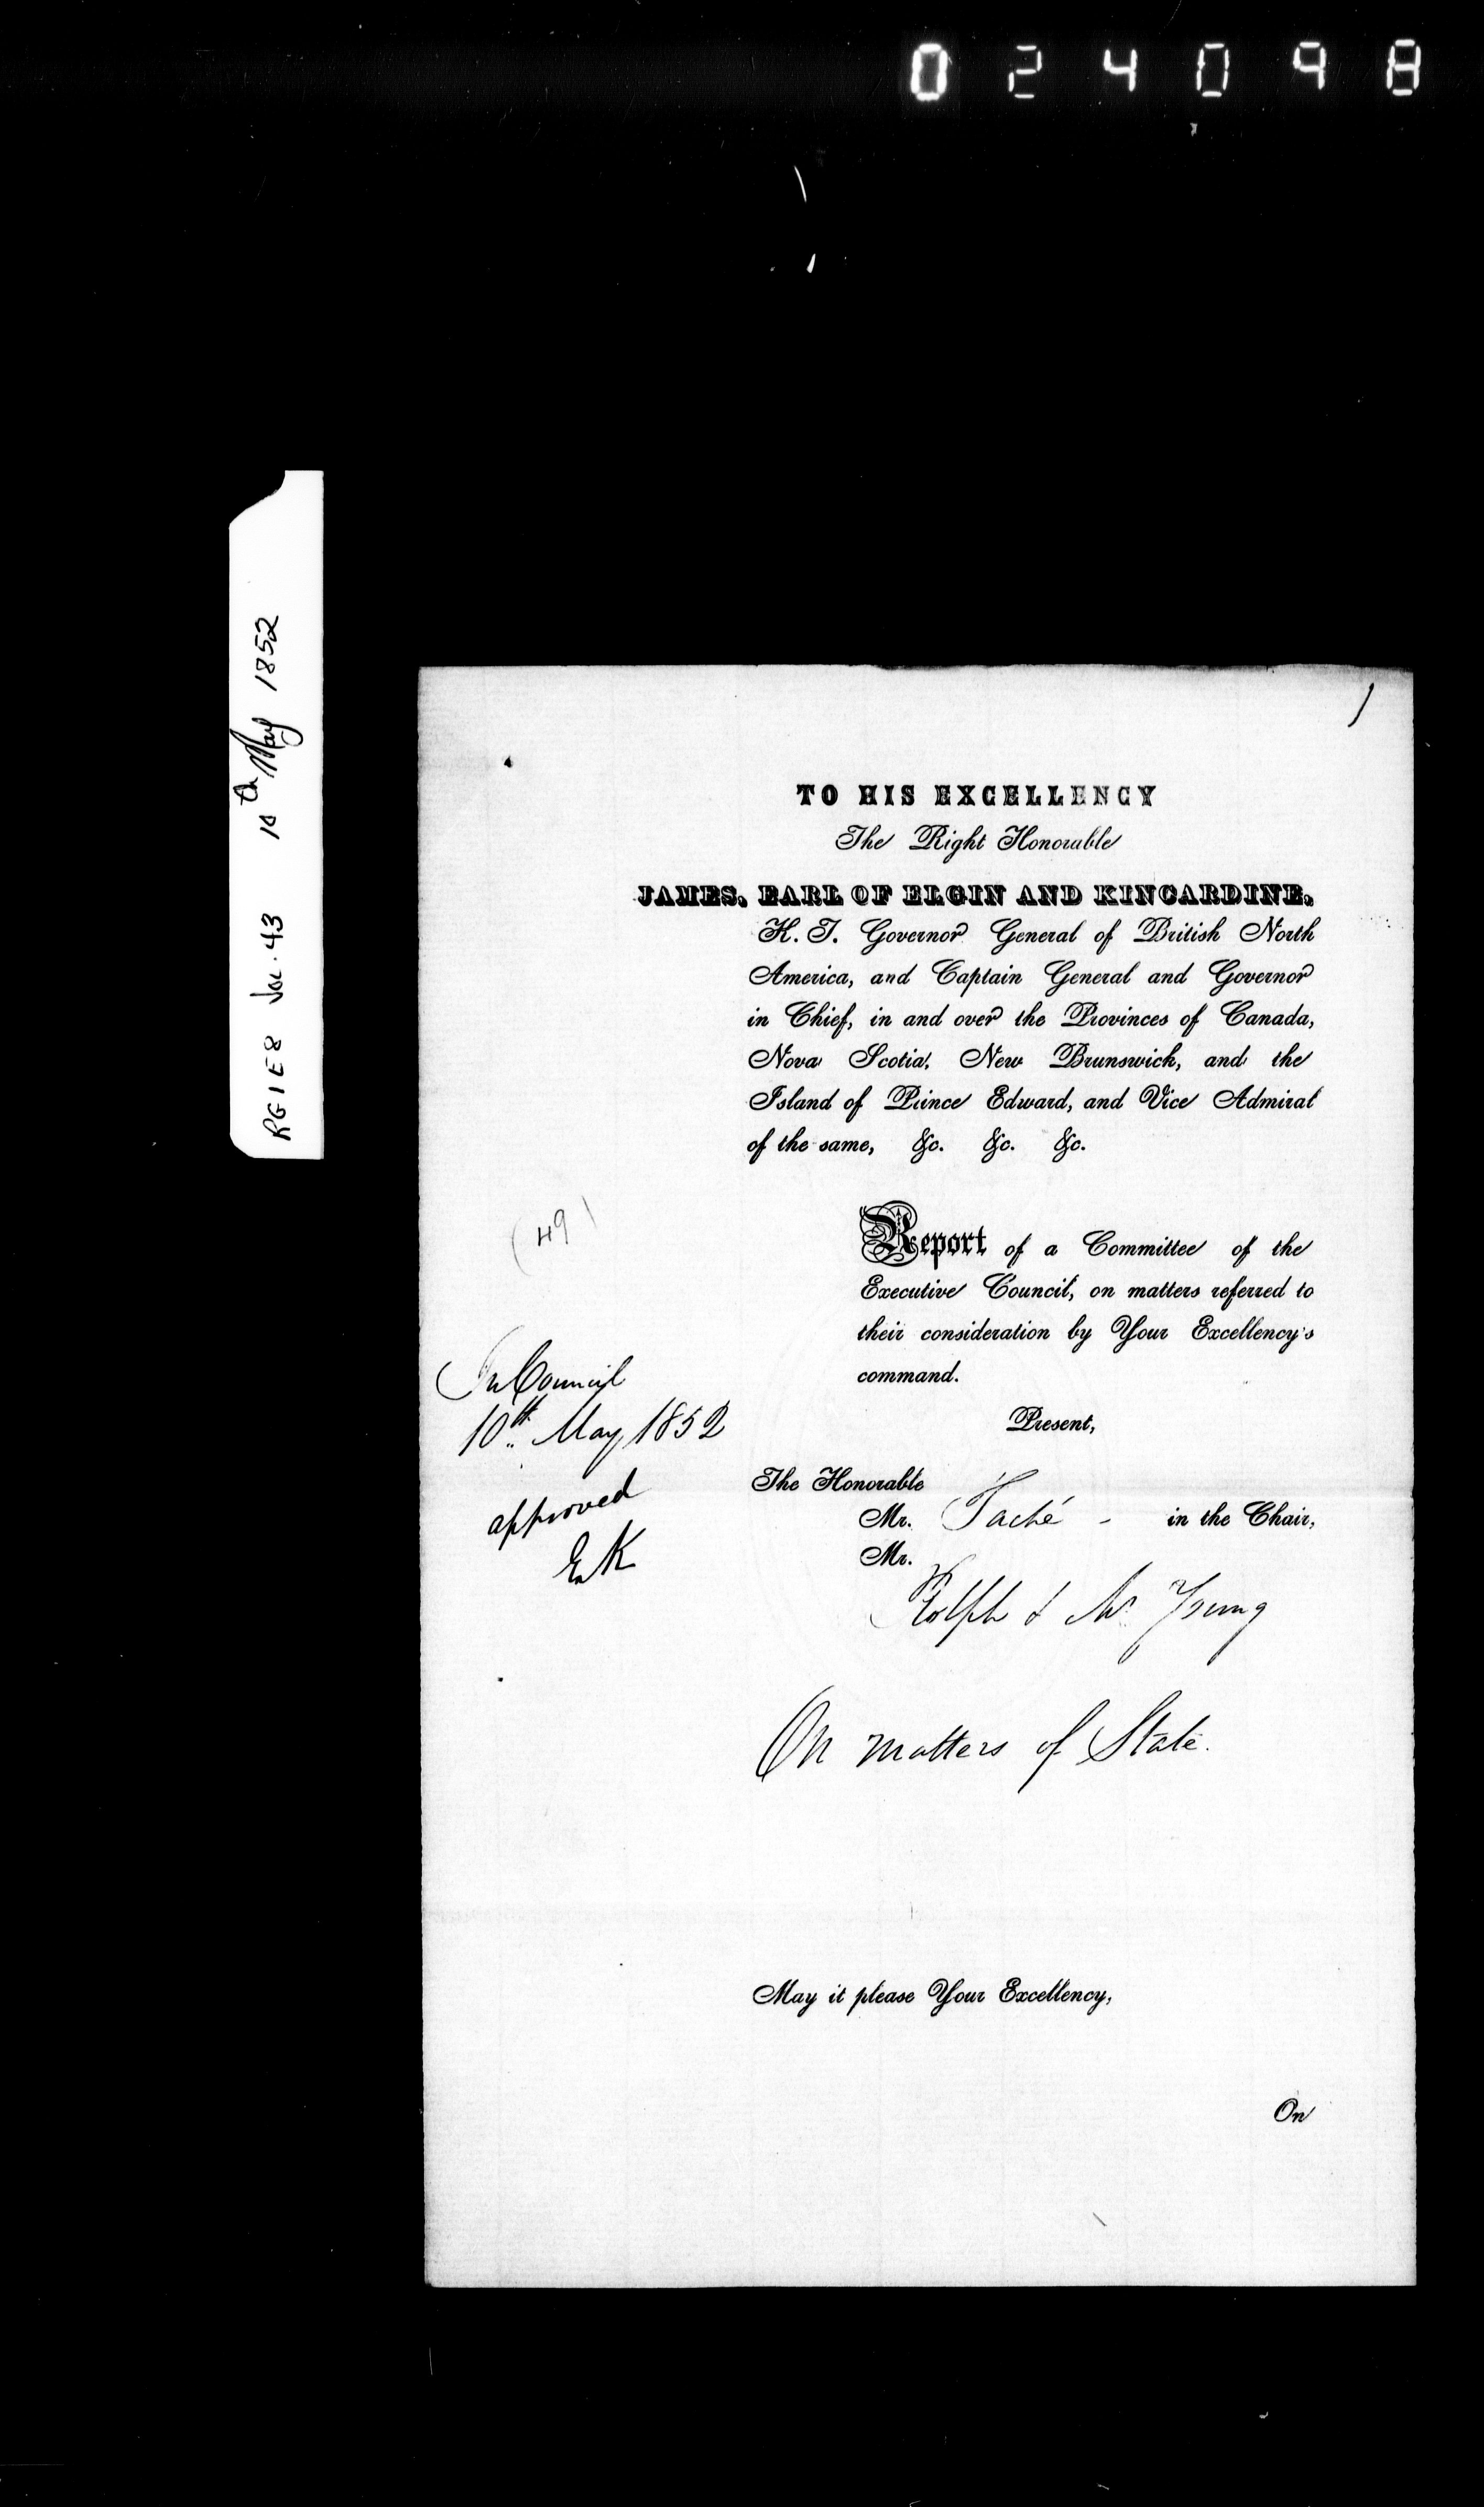 024098
RG1E8 Vol. 43 10th May 1852
1
TO HIS EXCELLENCY
The Right Honorable
JAMES, EARL OF ELGIN AND KINCARDINE,
K. T. Governor General of British North
America, and Captain General and Governor
in Chief, in and over the Provinces of Canada,
Nova Scotia, New Brunswick, and the
Island of Prince Edward, and Vice Admiral
of the same, &c. &c. &c.
(49)
Report of a Committee of the
Executive Council, on matters referred to
their consideration by Your Excellency's
command.
In Council
10th May 1852
approved
E&K
Present,
The Honorable
Mr. Taché - in the Chair,
Mr.
Rolph & Mr Young
On matters of State.
May it please Your Excellency,
On